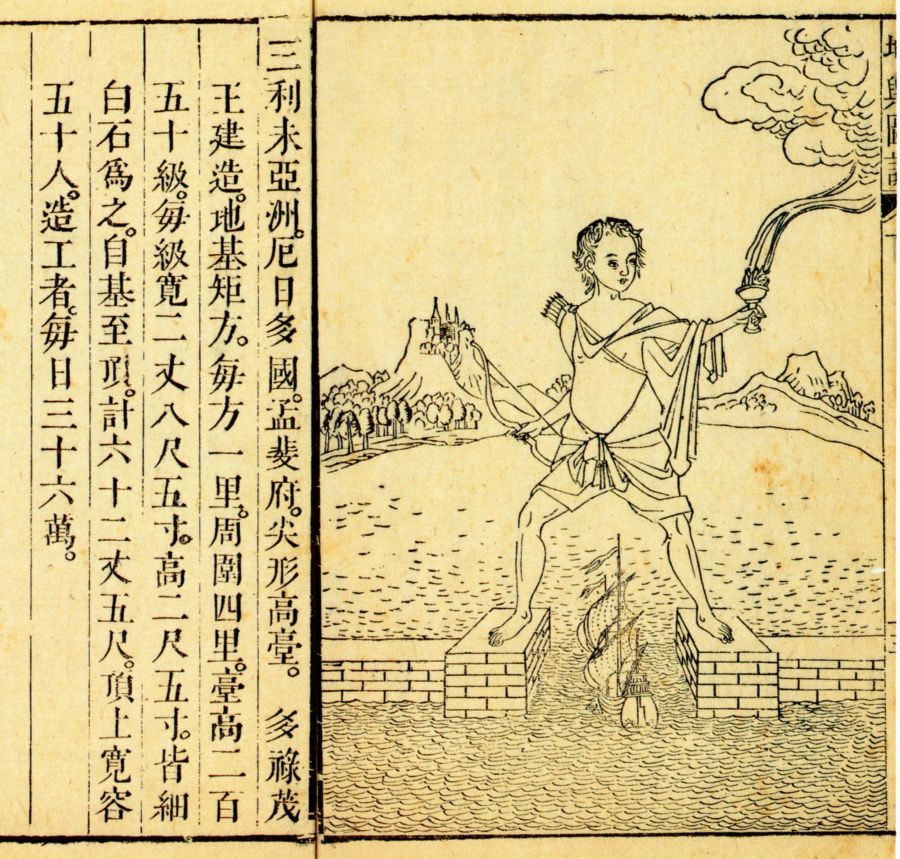 輿圖說
三利未亞洲。厄日多國。孟斐府。尖形高臺。 多祿茂
王建造。地基矩方。每方一里。周圍四里。臺高二百
五十級。每級寬二丈八尺五寸。高二尺五寸。皆細
白石爲之。自基至頂。計六十二丈五尺。頂上寬容
五十人。造工者。每日三十六萬。